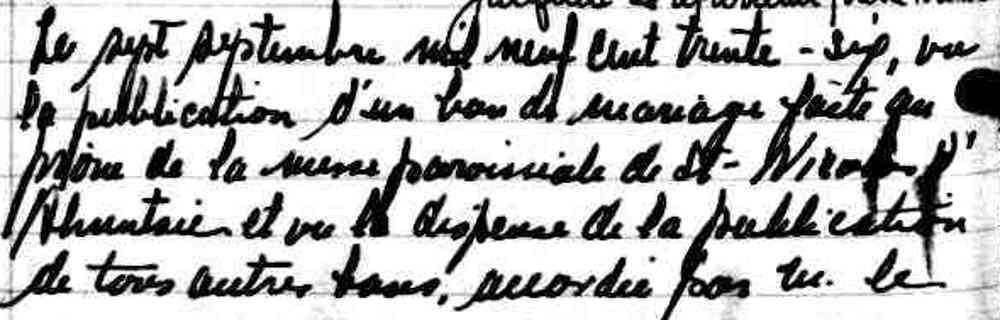 Le sept septembre mil neuf cent trente-six, vu
la publication d'un ban de mariage faite au
prône de la messe paroissiale de St-Nicolas d'
Ahuntsic et vu la dispense de la publication
de tous autres bans, accordée par M. le